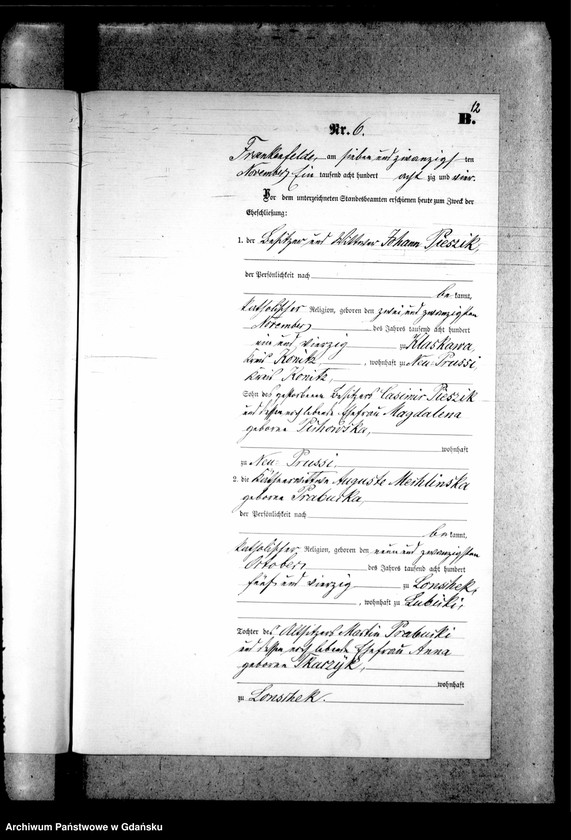 12
B.
Nr. 6.
Frankenfelde, am sieben und zwanzigsten
November Ein tausend acht hundert acht zig und vier.
Vor dem unterzeichneten Standesbeamten erschienen heute zum Zweck der
Eheschließung:
1. der Besitzer und Wittwer Johann Pieszik,
der Persönlichkeit nach
be kannt,
katholischer Religion, geboren den zwei und zwanzigsten
November des Jahres tausend acht hundert
ein und vierzig zu Klaskawa,
Kreis Konitz, wohnhaft zu Neu-Prussi,
Kreis Konitz,
Sohn des gestorbenen Besitzers Casimir Pieszik
und dessen noch lebende Ehefrau Magdalena
geborene
wohnhaft
zu Neu-Prussi.
2. die Auguste Mechlinska
geborene Prabucka,
der Persönlichkeit nach
be kannt,
katholischer Religion, geboren den neun und zwanzigsten
October des Jahres tausend acht hundert
fünf und vierzig zu Lonsihek,
, wohnhaft zu Lubicki,
Tochter des Altsitzers Martin Prabucki
und dessen noch lebende Ehefrau Anna
geborene
wohnhaft
zu Lonsihek.
Archiwum Państwowe w Gdańsku